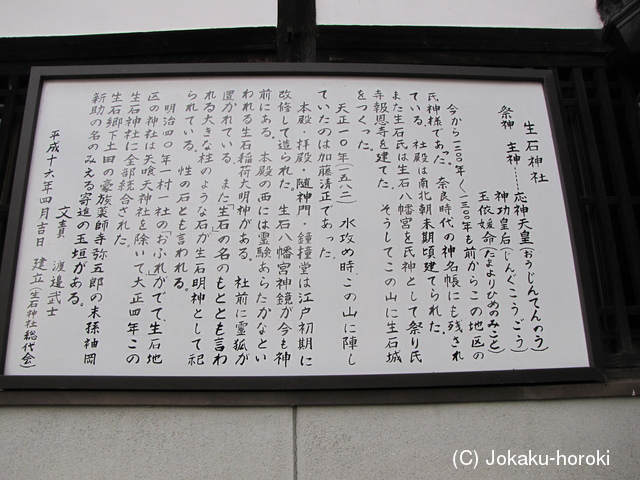 生石神社
祭神 主神……応神天皇(おうじんてんのう)
神功皇后(じんぐうこうごう)
玉依媛命(たまよりひめのみこと)
今から一二〇〇年〜一三〇〇年も前からこの地区の
氏神様であった。奈良時代の神名帳にも残され
ている。社殿は南北朝末期頃建てられた。
また生石氏は生石八幡宮を氏神として祭り氏
寺報恩寺を建てた。そうしてこの山に生石城
をつくった。
天正一〇年(一五八二)水攻め時この山に陣し
ていたのは加藤清正であった。
本殿・拝殿・随神門・鐘撞堂は江戸初期に
改修して造られた。生石八幡宮神鏡が今も神
前にある。本殿の西には霊験あらたかなとい
われる生石稲荷大明神がある。社前に霊狐が
置かれている。また「生石」の名のもととも言わ
れる大きな柱のような石が生石明神として祀
られている。性の石とも言われる。
明治四〇年一村一社の「おふれ」がでて、生石地
区の神社は矢喰天神社を除いて大正四年この
生石神社に全部統合された。
生石郷下土田の豪族薬師寺弥五郎の末孫袖岡
新助の名のみえる寄進の玉垣がある。
文責 渡邉武士
平成十六年四月吉日 建立(生石神社総代会)
(C) Jokaku-horoki